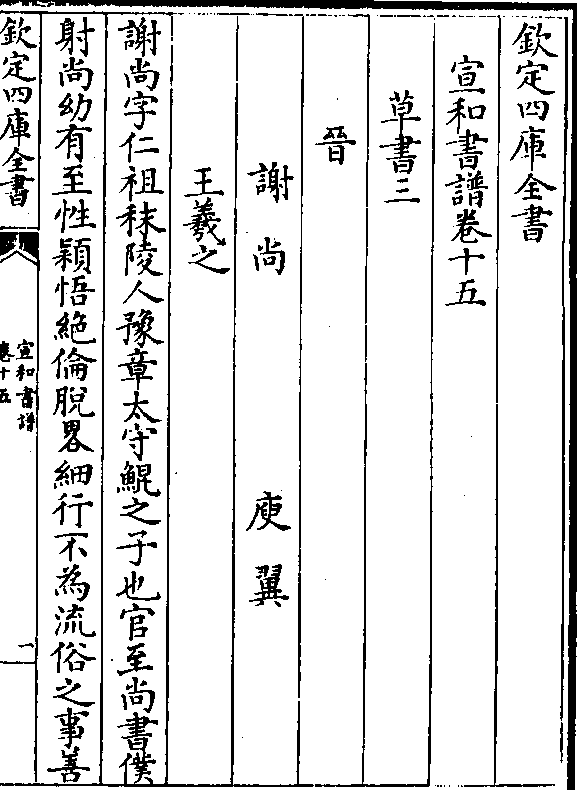 欽定四庫全書
宣和書譜卷十五
草書三
晉
謝尚 庾翼
王羲之
謝尚字仁祖秣陵人豫章太守鯤之子也官至尚書僕
射尚幼有至性穎悟絶倫脫畧細行不為流俗之事善
欽定四庫全書
宣和書譜
卷十五
一